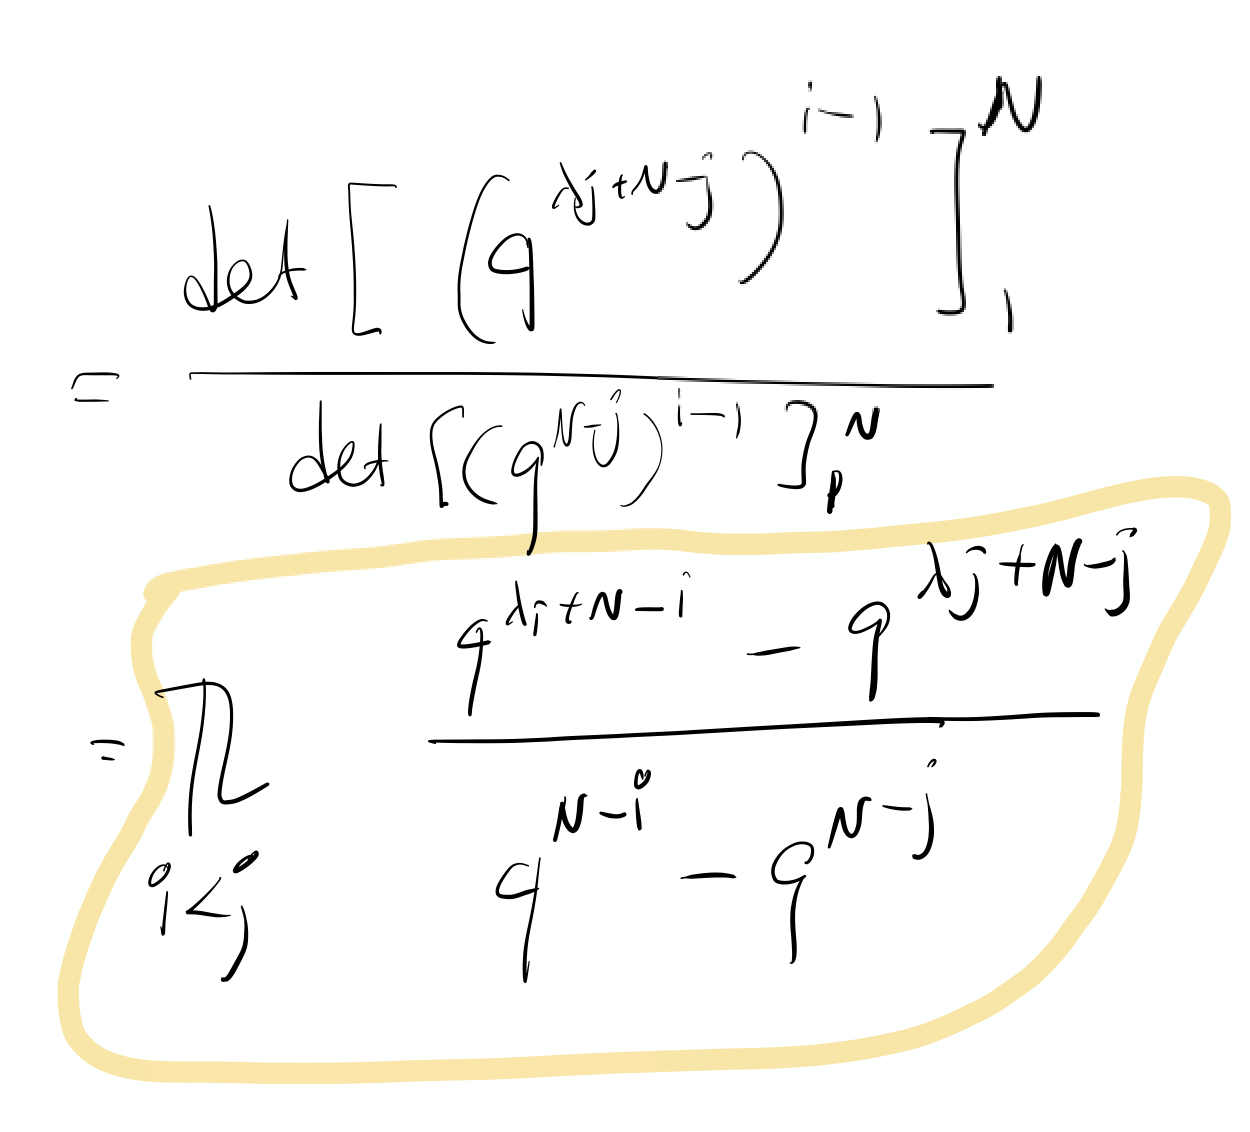 = \frac{\det [ (q^{\lambda_j + N - j})^{i-1} ]_1^N}{\det [ (q^{N-j})^{i-1} ]_1^N}
= \prod_{i<j} \frac{q^{\lambda_i + N - i} - q^{\lambda_j + N - j}}{q^{N-i} - q^{N-j}}